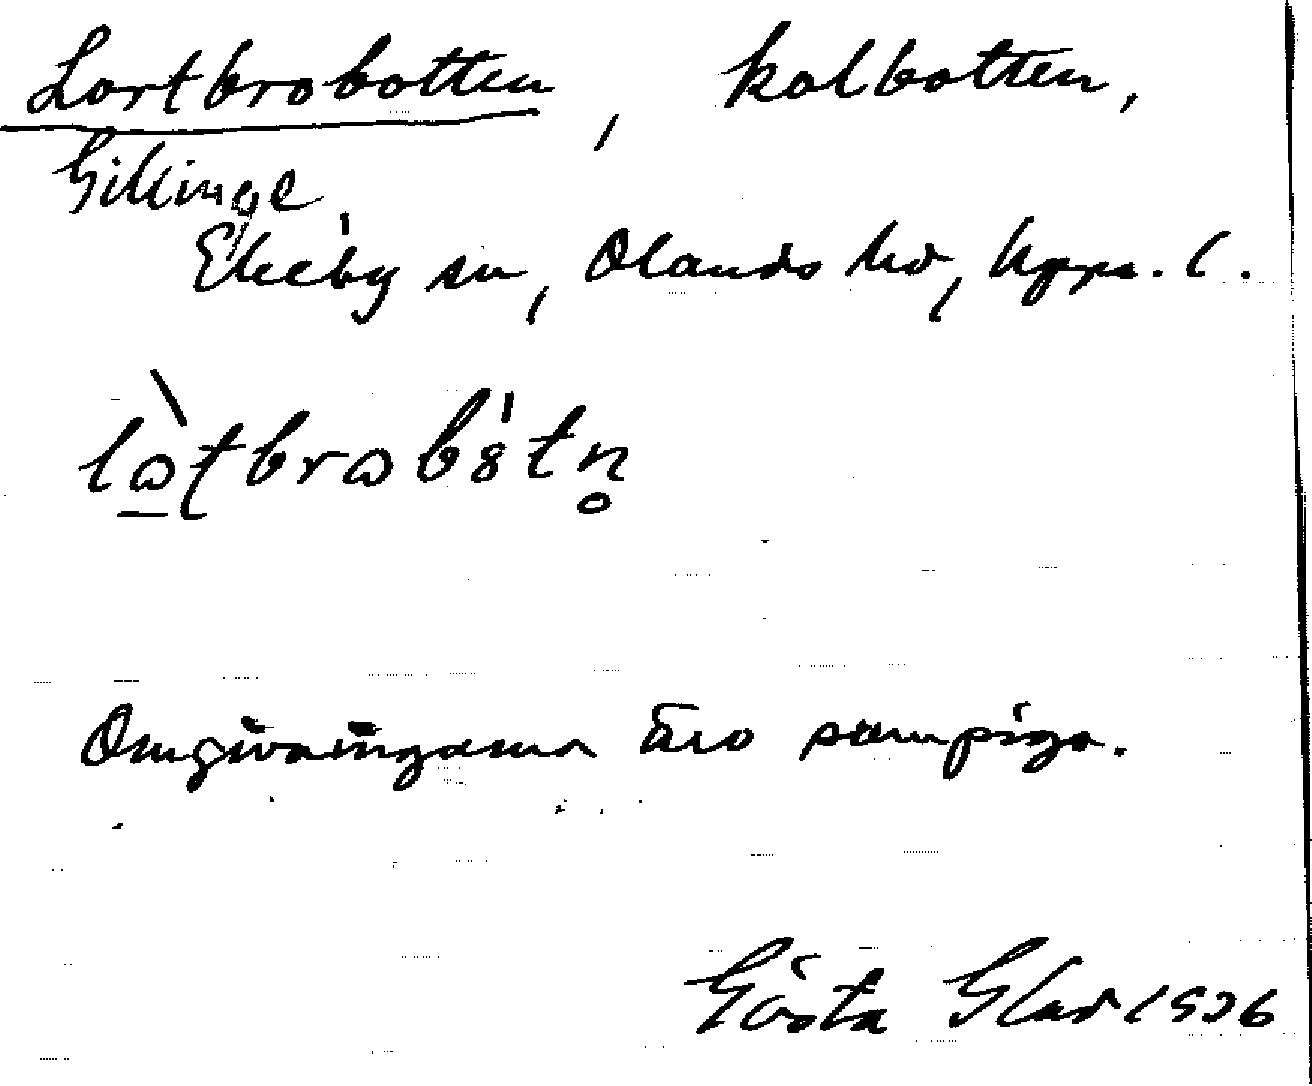 Lortbrobotten, kolbotten,
Gillinge
Ekeby sn, Olands hd, Upps. l.
Omgivningarna äro sumpiga.
Gösta Glad 1936